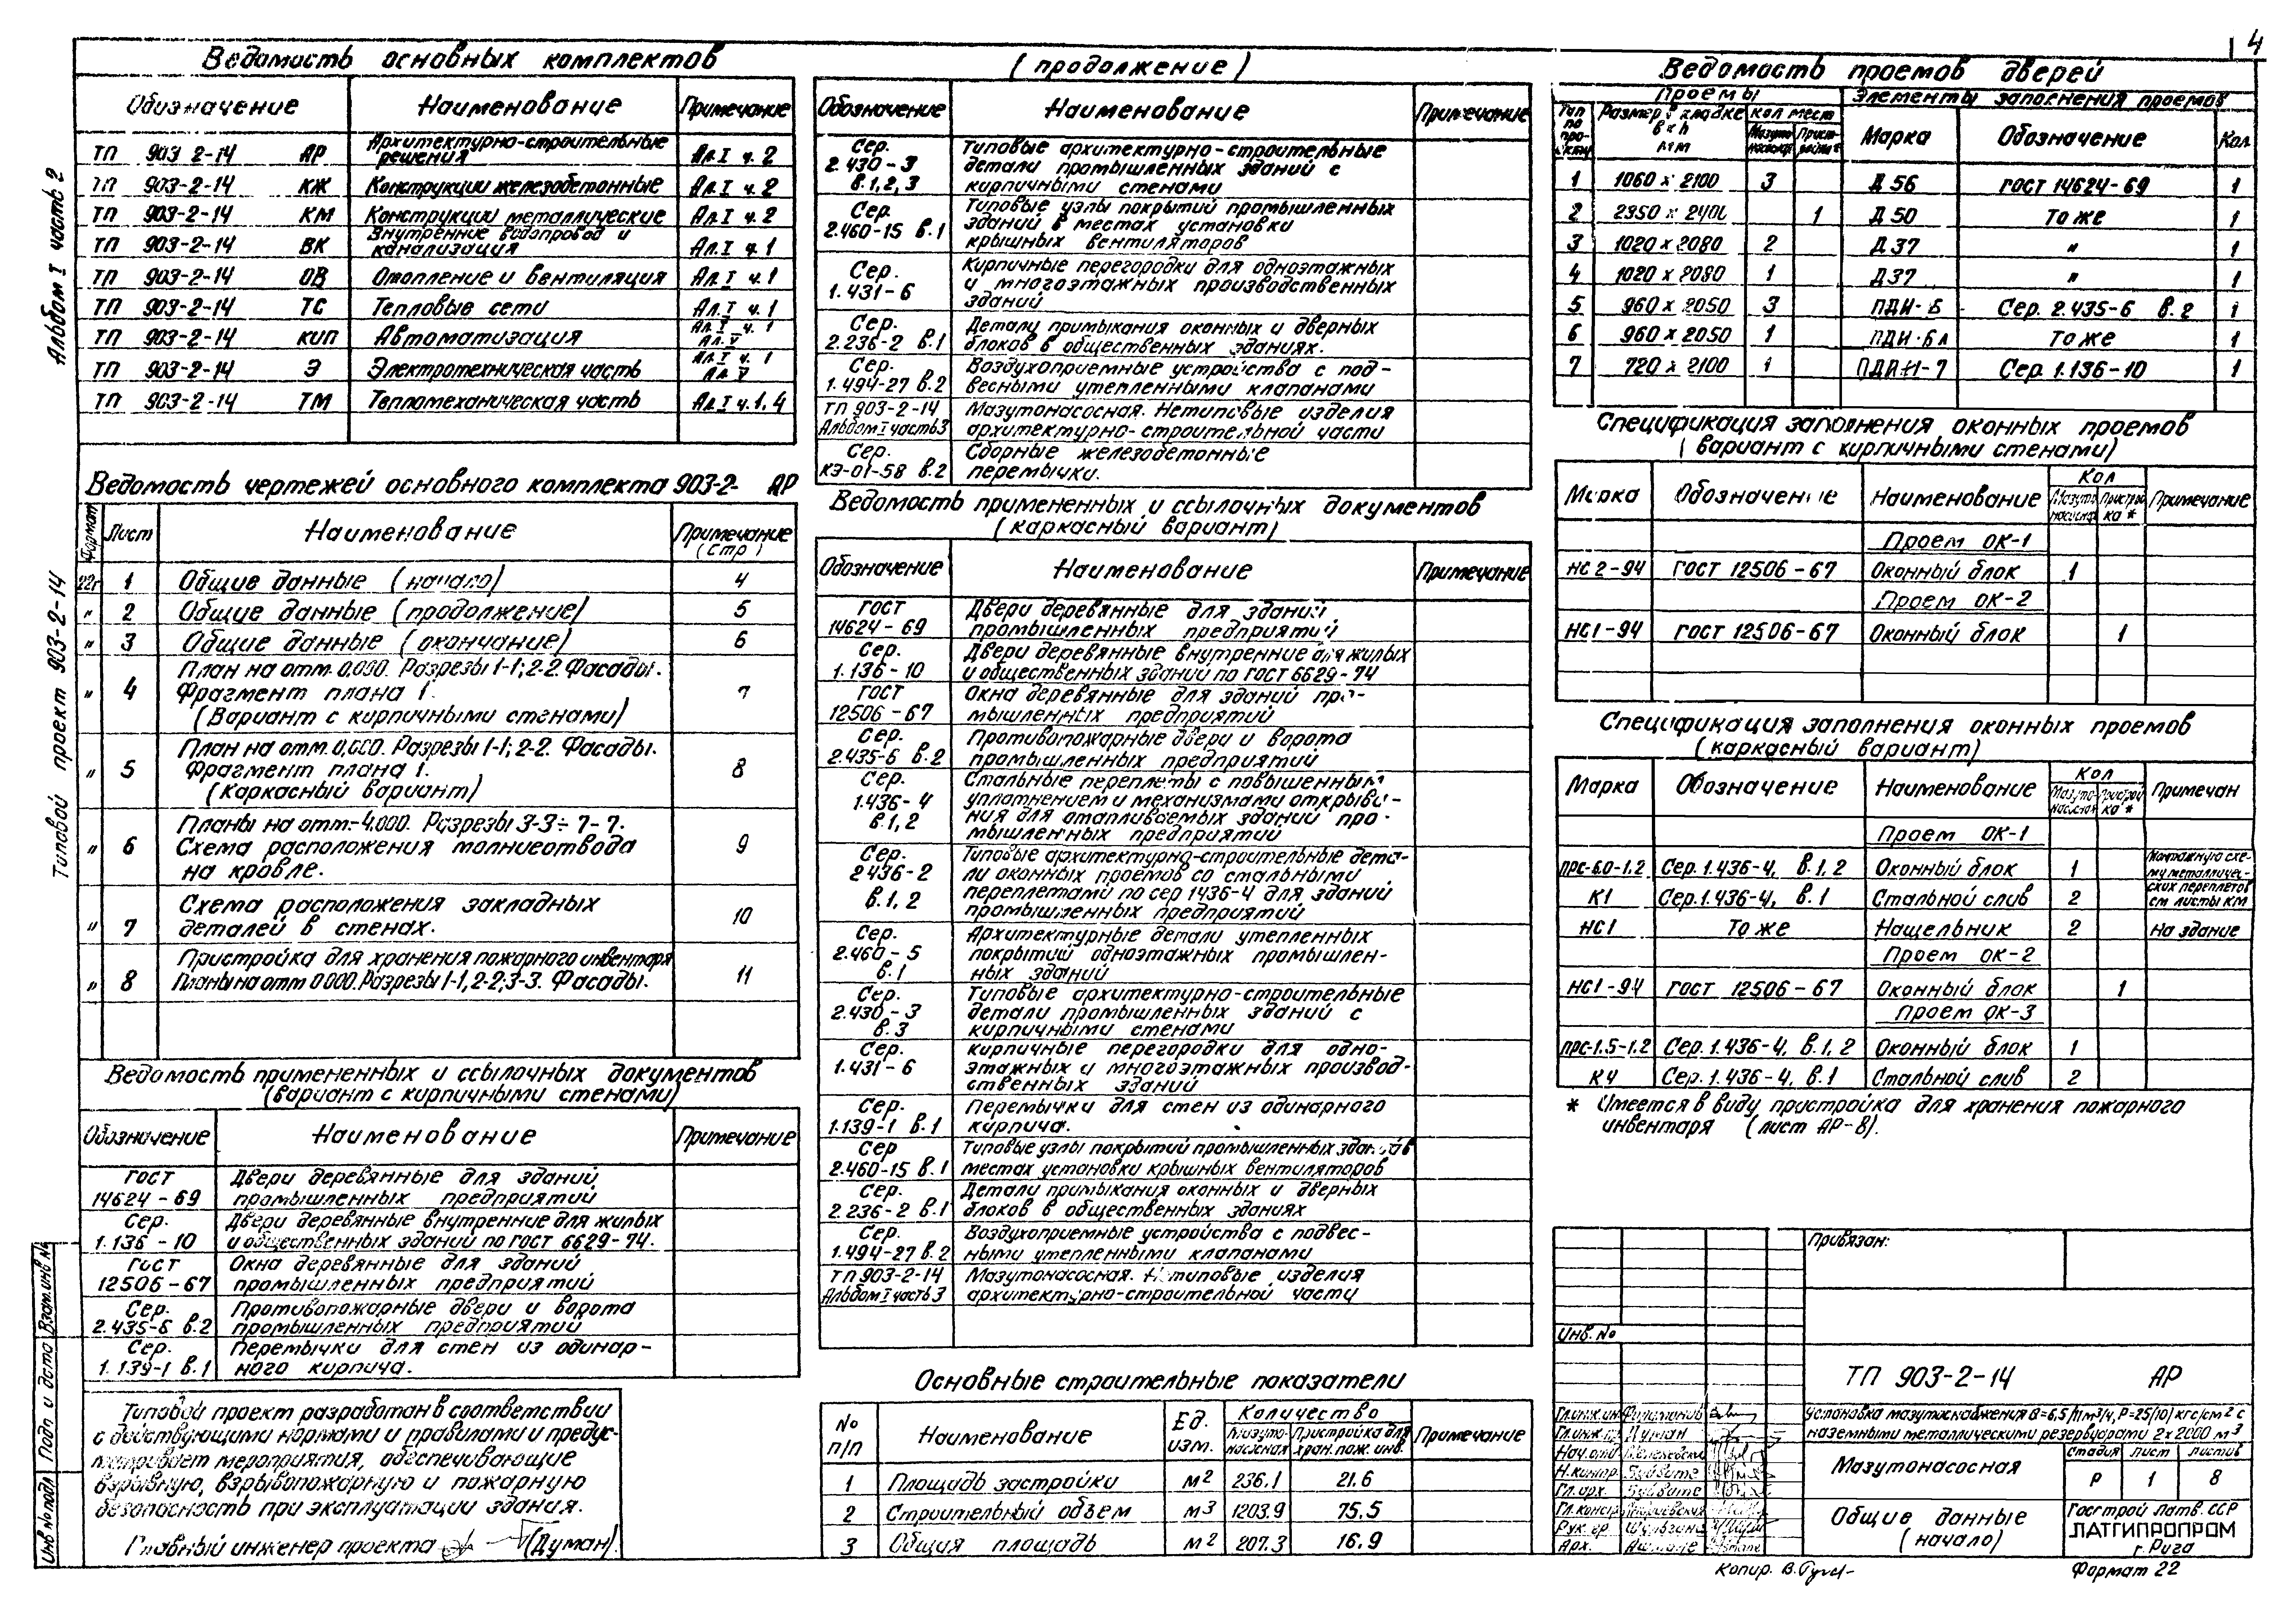 4
Альбом I часть 2
Типовой проект 903-2-14
Ведомость основных комплектов
Обозначение Наименование Примечание
ТП 903 2-14 АР Архитектурно-строительные решения Ал. I ч. 2
ТП 903-2-14 КЖ Конструкции железобетонные Ал. I ч. 2
ТП 903-2-14 КМ Конструкции металлические Ал. I ч. 2
ТП 903-2-14 ВК Внутренние водопровод и канализация Ал. I ч. 1
ТП 903-2-14 ОВ Отопление и вентиляция Ал. I ч. 1
ТП 903-2-14 ТС Тепловые сети Ал. I ч. 1
ТП 903-2-14 КИП Автоматизация Ал. I ч. 1 Ал. V
ТП 903-2-14 Э Электротехническая часть Ал. I ч. 1 Ал. V
ТП 903-2-14 ТМ Тепломеханическая часть Ал. I ч. 1, 4
Ведомость чертежей основного комплекта 903-2- АР
Формат Лист Наименование Примечание (стр)
22г 1 Общие данные (начало) 4
" 2 Общие данные (продолжение) 5
" 3 Общие данные (окончание) 6
План на отм. 0.000. Разрезы 1-1; 2-2. Фасады.
" 4 Фрагмент плана 1. 7
(Вариант с кирпичными стенами)
План на отм. 0.000. Разрезы 1-1; 2-2. Фасады.
" 5 Фрагмент плана 1. 8
(Каркасный вариант)
Планы на отм.-4.000. Разрезы 3-3÷7-7.
" 6 Схема расположения молниеотвода 9
на кровле.
Схема расположения закладных
" 7 деталей в стенах. 10
Пристройка для хранения пожарного инвентаря
" 8 Планы на отм 0.000. Разрезы 1-1, 2-2; 3-3. Фасады. 11
Ведомость примененных и ссылочных документов
(вариант с кирпичными стенами)
Обозначение Наименование Примечание
ГОСТ Двери деревянные для зданий
14624-69 промышленных предприятий
Сер. Двери деревянные внутренние для жилых
1.136-10 и общественных зданий по ГОСТ 6629-74.
ГОСТ Окна деревянные для зданий
12506-67 промышленных предприятий
Сер. Противопожарные двери и ворота
2.435-6 в.2 промышленных предприятий
Сер. Перемычки для стен из одинар-
1.139-1 в.1 ного кирпича.
Типовой проект разработан в соответствии
с действующими нормами и правилами и предус-
матривает мероприятия, обеспечивающие
взрывную, взрывопожарную и пожарную
безопасность при эксплуатации здания.
Главный инженер проекта (Думан).
Инв № подл Подп и дата Взам. инв №
(продолжение)
Обозначение Наименование Примечание
Сер. Типовые архитектурно-строительные
2.430-3 детали промышленных зданий с
в.1, 2, 3 кирпичными стенами
Сер. Типовые узлы покрытий промышленных
2.460-15 в.1 зданий в местах установки
крышных вентиляторов
Сер. Кирпичные перегородки для одноэтажных
1.431-6 и многоэтажных производственных
зданий
Сер. Детали примыкания оконных и дверных
2.236-2 в.1 блоков в общественных зданиях.
Сер. Воздухоприемные устройства с под-
1.494-27 в.2 весными утепленными клапанами
ТП 903-2-14 Мазутонасосная. Нетиповые изделия
Альбом I часть 3 архитектурно-строительной части
Сер. Сборные железобетонные
КЭ-01-58 в.2 перемычки.
Ведомость примененных и ссылочных документов
(каркасный вариант)
Обозначение Наименование Примечание
ГОСТ Двери деревянные для зданий
14624-69 промышленных предприятий
Сер. Двери деревянные внутренние для жилых
1.136-10 и общественных зданий по ГОСТ 6629-74
ГОСТ Окна деревянные для зданий про-
12506-67 мышленных предприятий
Сер. Противопожарные двери и ворота
2.435-6 в.2 промышленных предприятий
Сер. Стальные переплеты с повышенным
1.436-4 уплотнением и механизмами открыва-
в.1, 2 ния для отапливаемых зданий про-
мышленных предприятий
Сер. Типовые архитектурно-строительные дета-
2.436-2 ли оконных проемов со стальными
в.1, 2 переплетами по сер 1.436-4 для зданий
промышленных предприятий
Сер. Архитектурные детали утепленных
2.460-5 покрытий одноэтажных промышлен-
в.1 ных зданий
Сер. Типовые архитектурно-строительные
2.430-3 детали промышленных зданий с
в.3 кирпичными стенами
Сер. кирпичные перегородки для одно-
1.431-6 этажных и многоэтажных производ-
ственных зданий
Сер. Перемычки для стен из одинарного
1.139-1 в.1 кирпича.
Сер Типовые узлы покрытий промышленных зданий в
2.460-15 в.1 местах установки крышных вентиляторов
Сер. Детали примыкания оконных и дверных
2.236-2 в.1 блоков в общественных зданиях
Сер. Воздухоприемные устройства с подвес-
1.494-27 в.2 ными утепленными клапанами
ТП 903-2-14 Мазутонасосная. Нетиповые изделия
Альбом I часть 3 архитектурно-строительной части
Основные строительные показатели
№ п/п Наименование Ед. изм. Количество Примечание
Мазуто-насосная Пристройка для хран. пож. инв.
1 Площадь застройки м² 236.1 21.6
2 Строительный объем м³ 1203.9 75,5
3 Общая площадь м² 207.3 16.9
Ведомость проемов дверей
Проемы Элементы заполнения проемов
Тип по проекту Размер в кладке в х h мм Кол мест Марка Обозначение Кол.
Мазутонасосная Пристройка
1 1060 х 2100 3 Д 56 ГОСТ 14624-69 1
2 2350 х 2400 1 Д 50 То же 1
3 1020 х 2080 2 Д 37 " 1
4 1020 х 2080 1 Д37 " 1
5 960 х 2050 3 ПДИ-Б Сер. 2.435-6 в.2 1
6 960 х 2050 1 ПДИ-6л То же 1
7 720 х 2100 1 Сер. 1.136-10 1
Спецификация заполнения оконных проемов
(вариант с кирпичными стенами)
Марка Обозначение Наименование Кол Примечание
Мазутонасосная Пристройка *
Проем ОК-1
НС 2-94 ГОСТ 12506-67 Оконный блок 1
Проем ОК-2
НС1-94 ГОСТ 12506-67 Оконный блок 1
Спецификация заполнения оконных проемов
(каркасный вариант)
Марка Обозначение Наименование Кол Примечан
Мазуто-насосная Пристройка *
Проем ОК-1
ПРС-6.0-1.2 Сер. 1.436-4, в.1, 2 Оконный блок 1 Монтажную схе-му металличес-
К1 Сер. 1.436-4, в.1 Стальной слив 2 ских переплетов см листы КМ
НС1 То же Нащельник 2 На здание
Проем ОК-2
НС1-94 ГОСТ 12506-67 Оконный блок 1
Проем ОК-3
ПРС-1.5-1.2 Сер. 1.436-4, в.1, 2 Оконный блок 1
К4 Сер. 1.436-4, в.1 Стальной слив 2
* Имеется в виду пристройка для хранения пожарного
инвентаря (лист АР-8).
Привязан:
Инв. №
ТП 903-2-14 АР
Установка мазутоснабжения Q=6,5 м³/ч, Р=25(10) кгс/см² с
наземными металлическими резервуарами 2х2000 м³
Гл. инж. ин
Гл. инж. п. Думан
Нач. отд
Н. контр.
Гл. арх.
Гл. констр
Рук. гр
Арх.
Мазутонасосная
стадия лист листов
Р 1 8
Общие данные
(начало)
Госстрой Латв. ССР
ЛАТГИПРОПРОМ
г. Рига
Копир. В.
Формат 22